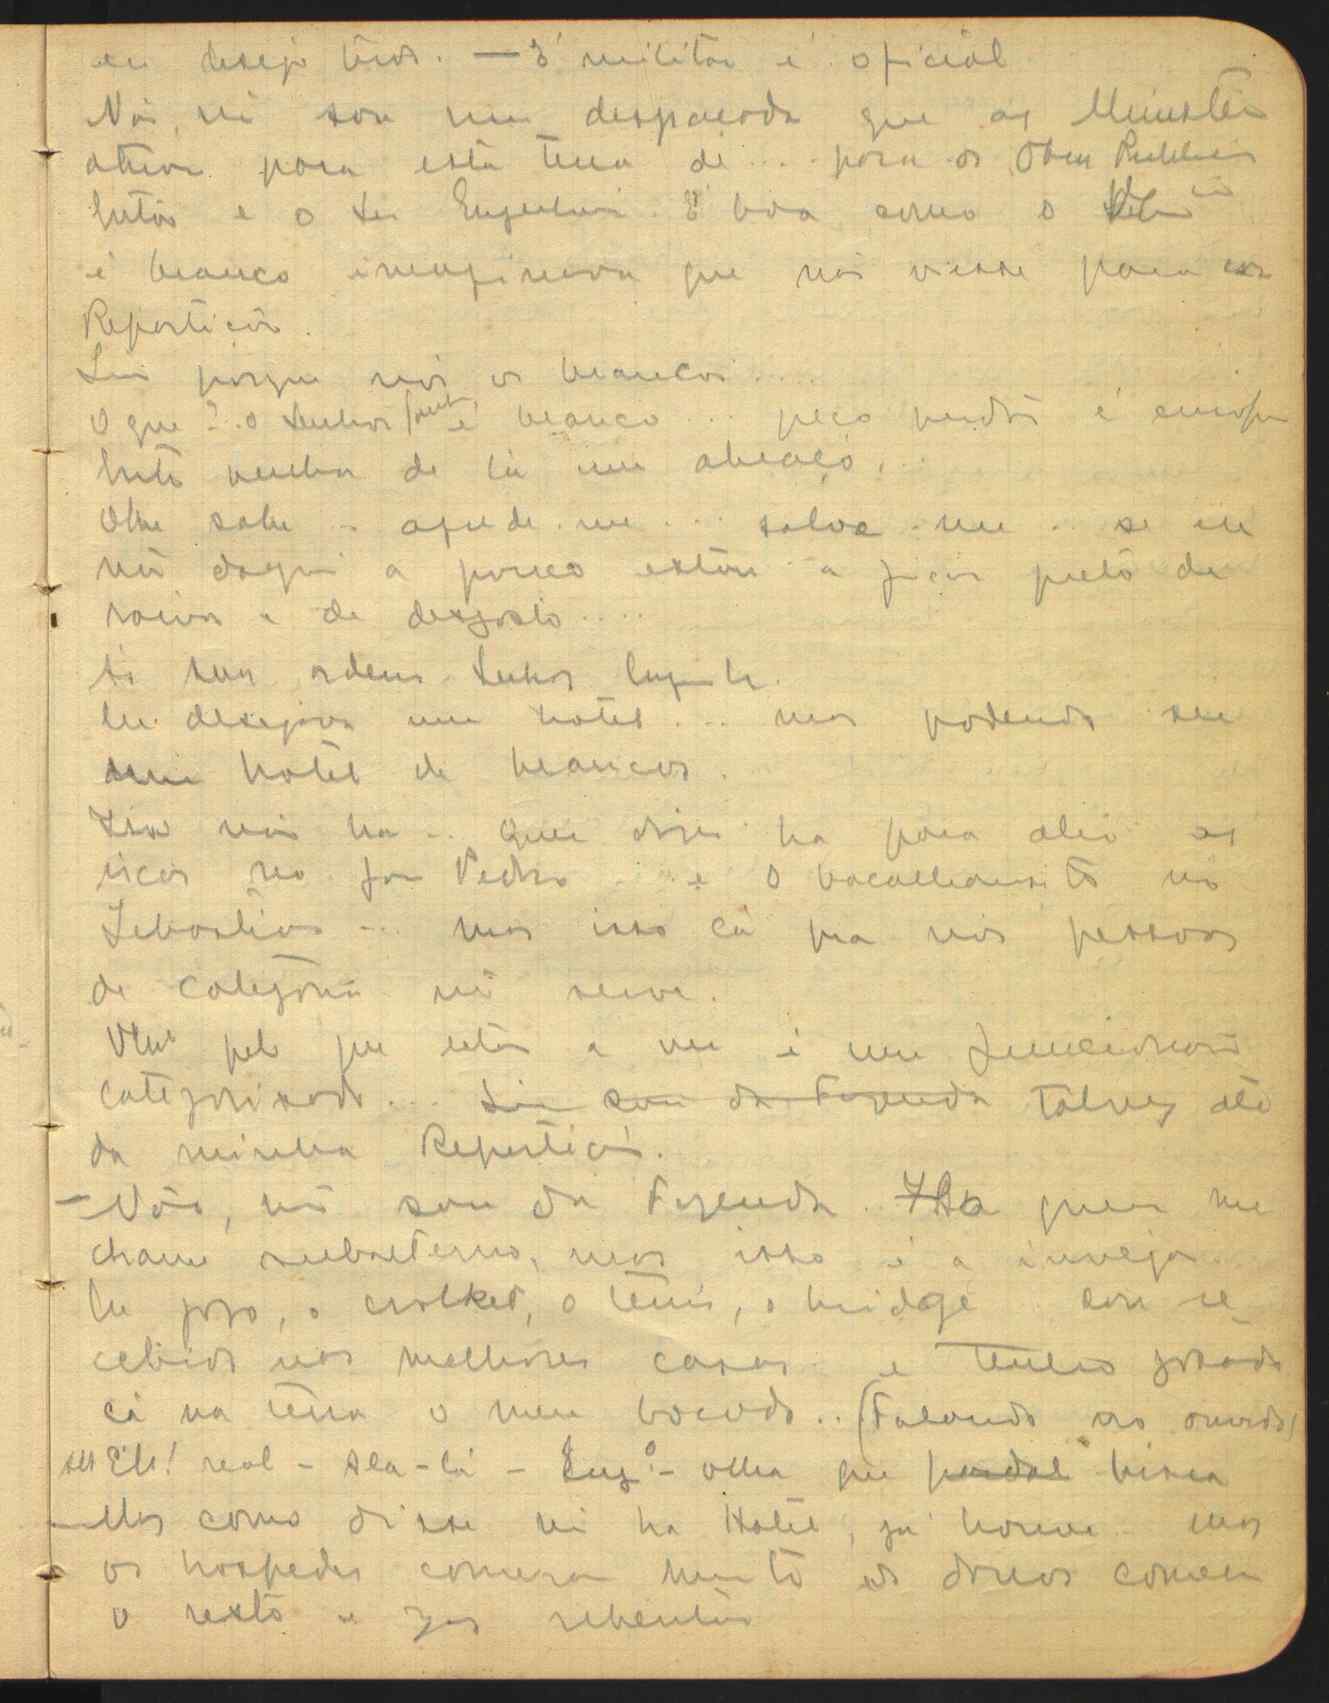 eu desejo tudo. — É militar é oficial
Não, nã sou um desgraçado que os Minister
atirou para esta terra de .... para as Obras Publicas
Então e o seu Engenheiro. É boa como o
é branco imaginava que não viesse para essa
Repartição.
Sim porque nós os brancos ....
O que? .. o senhor tambem é branco ... peço perdão é
Então venha de lá um abraço, ...
Olhe sabe .. ajude-me ... salve-me .. se eu
nã daqui a pouco estou a ficar preto de
raiva e de desgosto ....
Ás suas ordens Senhor Engenh.
Eu desejava um hotel ... mas podendo ser
um hotel de brancos.
Isso não ha .. Quem diga ha para ahi as
iscas no Pedro ... e o bacalhausito no
Sebastião ... mas isso cá pra nós pessoas
de categoria nã serve.
Olhe pelo que estou a ver é um funcionario
categorisado ... Sim sou da Fazenda talvez até
da minha Repartição.
— Não, nã sou da Fazenda. Ha quem me
chame subalterno, mas isso é a inveja.
Eu jogo, o crolket, o tenis, o bridge .. sou re
cebido nas melhores casas .. e tenho gosado
cá na terra o meu bocado .. (Falando ao ouvido)
Eh! real - sea-lá - Eng.º - olha que pardal bisca
— Mas como disse nã ha Hotel, já houve .. mas
os hospedes comeram muito os donos comem
o resto e zas rebentou